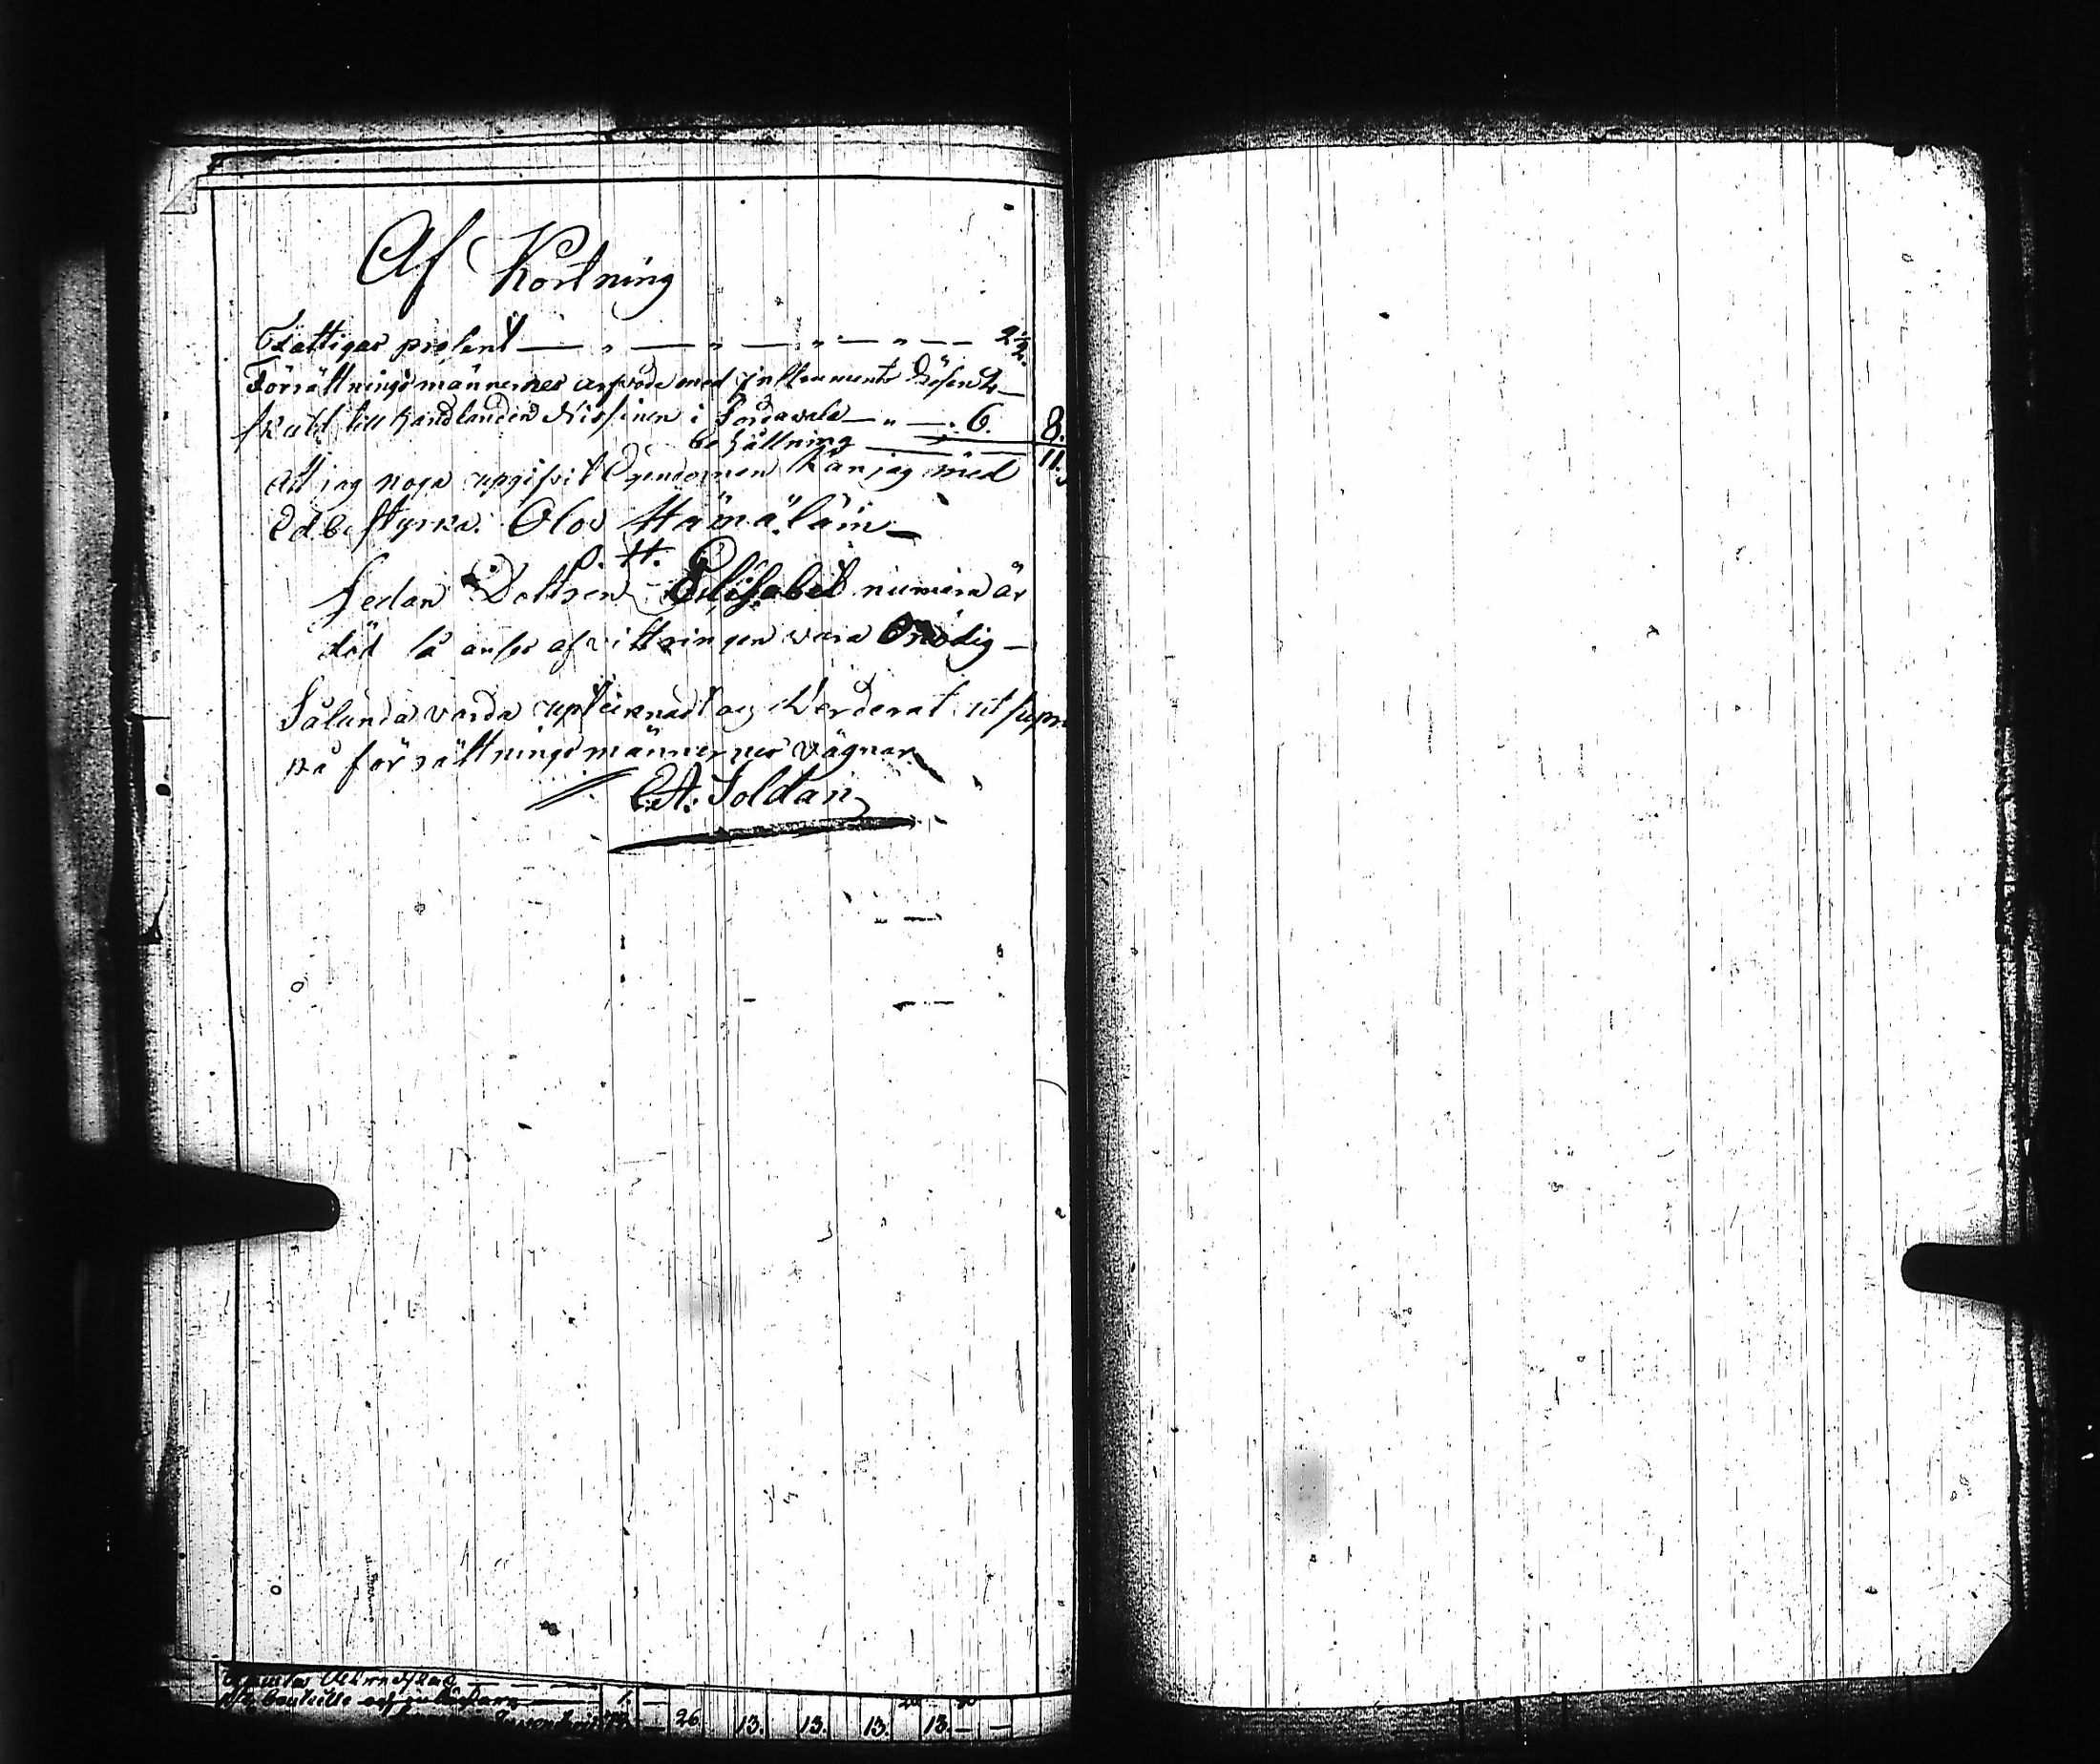 Af Kortning
Fattigas procent — " — — " — — " — " — — 2½.
Förrättningsmännernes arfvode med Instruments Lösen 2. —
skuld till Handlanden Nissinen i Sordavala — " — 6. 8.
behållning — 11.
Att jag noga upgifvit Egendomen kan jag med
Ed be styrka: Olov Hämäläin —
O. H.
sedan Dottren Elisabet numera är
död så anses afvittringen vara Onödig —
Sålunda varda upteknadt og Verderat ut supra
på förrättningsmännernes vägnar
C.A. Soldan
26 13. 13. 13. 13. — —